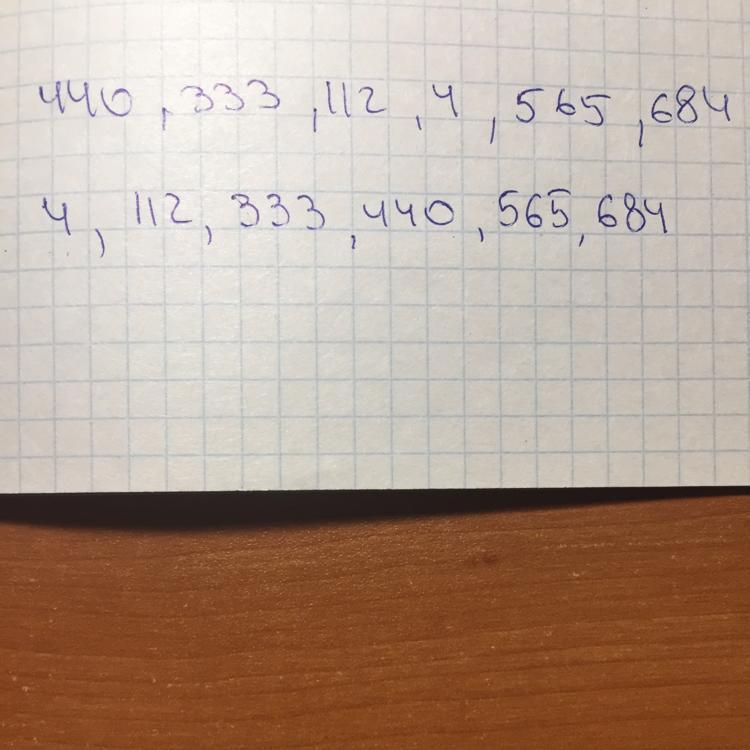 440, 333, 112, 4, 565, 684
4, 112, 333, 440, 565, 684